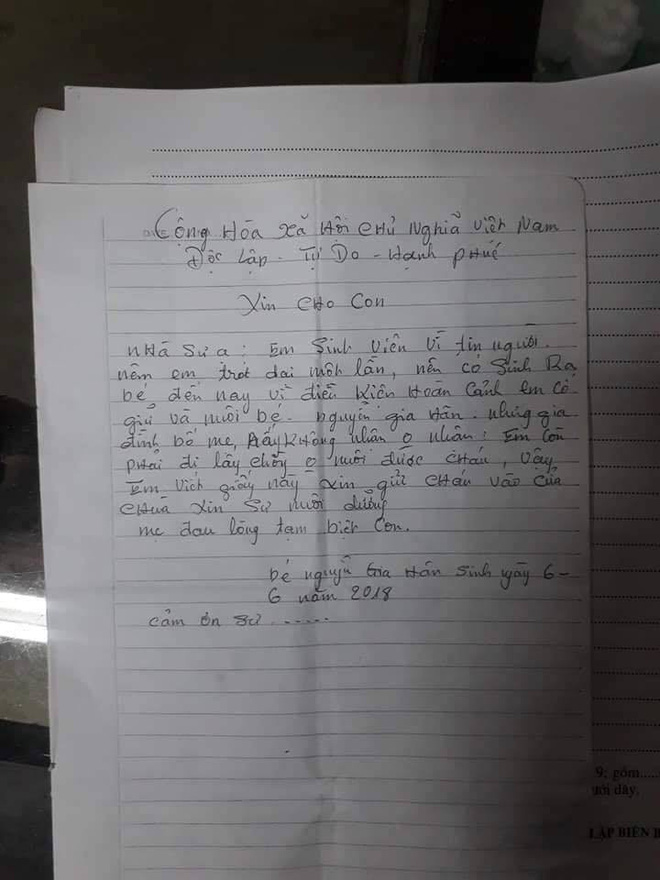 Cộng Hòa Xã Hội Chủ Nghĩa Việt Nam
Độc Lập - Tự Do - Hạnh Phúc
Xin Cho Con
Nhà Sư ạ: Em Sinh viên vì tin người.
nêm em trót dại một lần, nên có Sinh Ra
bé đến nay vì điều Kiên Hoàn Cảnh em có
giữ và nuôi bé - nguyễn gia Hân - nhưng gia
đình bố mẹ, Ấy không nhân o nhân: Em Còn
phải đi lấy chồng o nuôi được cháu, vậy
Em viết giấy này xin gửi cháu vào cửa
chùa xin Sư nuôi dưỡng
mẹ đau lòng tạm biệt Con.
bé nguyễn Gia Hân Sinh ngày 6-
6 năm 2018
cảm ơn sư ......
9; gồm.....
ưới đây.
LẬP BIÊN B